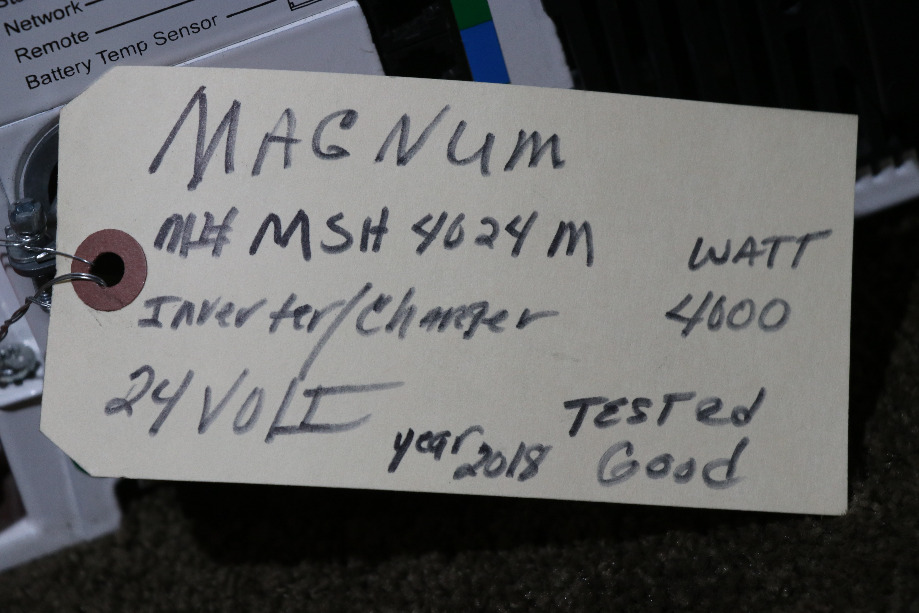 Network
Remote
Battery Temp Sensor
MAGNUM
M# MSH 4024 M
WATT
4000
Inverter/Charger
24 VOLT
TESTed
Good
year 2018